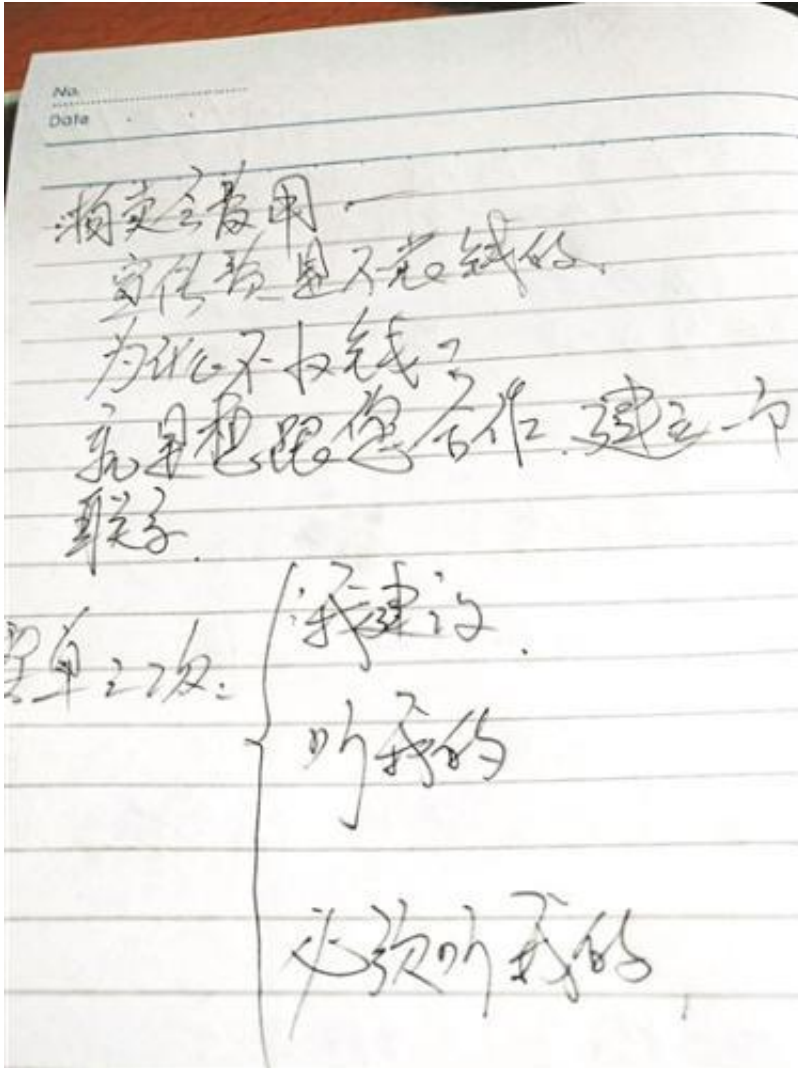 No.
Date
宣传费是不花钱的.
为什么不收钱?
就是想跟您合作.建立一个
联系.
单三次:
我建议.
听我的
必须听我的,